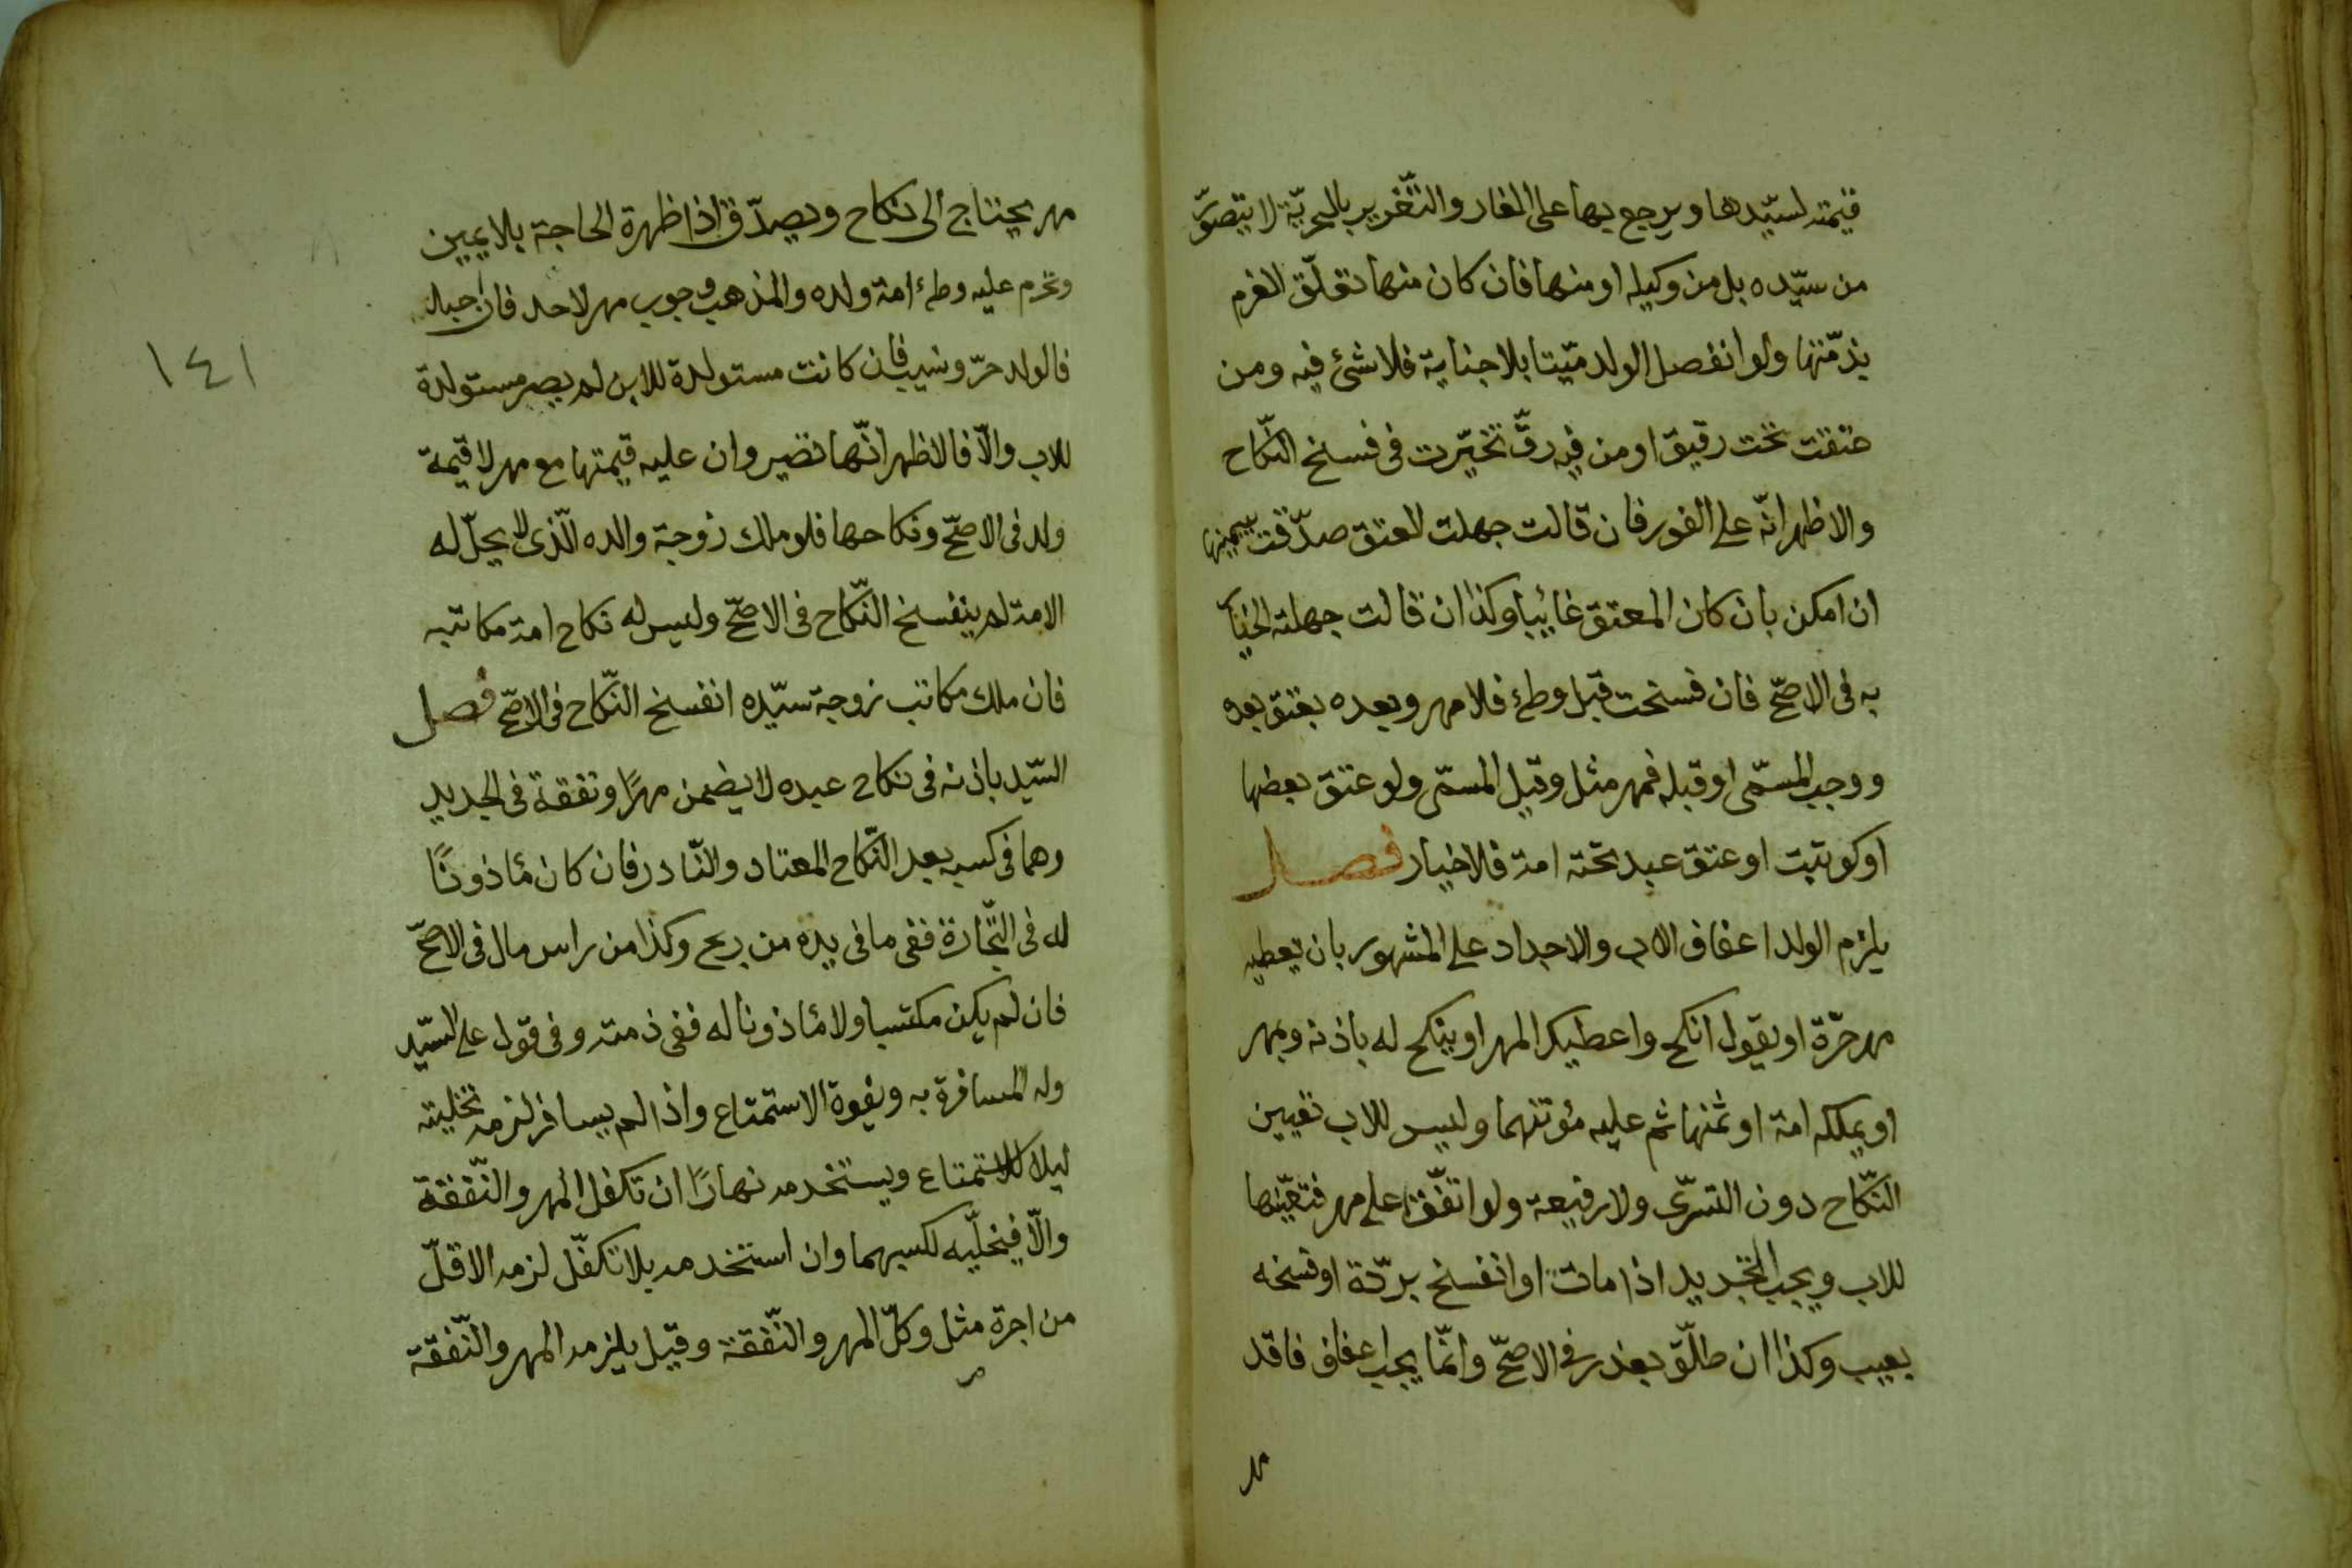 قيمته لسيّدها ويرجع بها على الغار والتّغرير بالحريّة لا يتصوّر
من سيّده بل من وكيله او منها فان كان منها تعلّق الغرم
بذمّتها ولو انفصل الولد ميّتا بلا جناية فلا شئ فيه ومن
عتقت تحت رقيق او من فيه رقّ تخيّرت فى فسخ النّكاح
والاظهر انّه على الفور فان قالت جهلت العتق صدّقت بيمينها
ان امكن بان كان المعتق غائبا وكذا ان قالت جهلت الخيار
به فى الاصحّ فان فسخت قبل وطئ فلا مهر وبعده بعتق بعده
ووجب المسمّى او قبله فمهر مثل وقيل المسمّى ولو عتق بعضها
او كوتبت او عتق عبد تحته امة فلا خيار فصل
يلزم الولد اعفاف الاب والاجداد على المشهور بان يعطيه
مهر حرّة او يقول انكح واعطيك المهر او ينكح له باذنه ويمهر
او يملكه امة او ثمنها ثم عليه مؤنتهما وليس للاب تعيين
النّكاح دون التسرّى ولا رفيعة ولو اتفّقا على مهر فتعيّنها
للاب ويجب التجديد اذا ماتت او انفسخ بردّة او فسخه
بعيب وكذا ان طلّق بعذر فى الاصحّ وانّما يجب اعفاف فاقد
مهر
مهر يحتاج الى نكاح ويصدّق اذا ظهرة الحاجة بلا يمين
وتحرم عليه وطئ امة ولده والمذهب وجوب مهر لا حد فان احبل
فالولد حرّ ونسيب فان كانت مستولدة للابن لم يصر مستولدة
للاب والّا فالاظهر انّها تصير وان عليه قيمتها مع مهر لا قيمة
ولد فى الاصحّ ونكاحها فلو ملك زوجة والده الّذى لا يحلّ له
الامة لم ينفسخ النّكاح فى الاصحّ وليس له نكاح امة مكاتبه
فان ملك مكاتب زوجة سيّده انفسخ النّكاح فى الاصحّ فصل
السّيد باذنه فى نكاح عبده لا يضمن مهرًا ونفقة فى الجديد
وهما فى كسبه بعد النّكاح المعتاد والنّادر فان كان مأذونًا
له فى التّجارة ففى ما فى يده من ربح وكذا من راس مال فى الاصحّ
فان لم يكن مكتسبا ولا مأذونا له ففى ذمته وفى قول على السّيد
وله المسافرة به ويفوة الاستمتاع واذا لم يسافر لزمه تخليته
ليلا للاستمتاع ويستخدمه نهارًا ان تكفل المهر والنّفقة
والّا فيخلّيه لكسبهما وان استخدمه بلا تكفّل لزمه الاقلّ
من اجرة مثل وكلّ المهر والنّفقة وقيل يلزمه المهر والنّفقة
١٤١